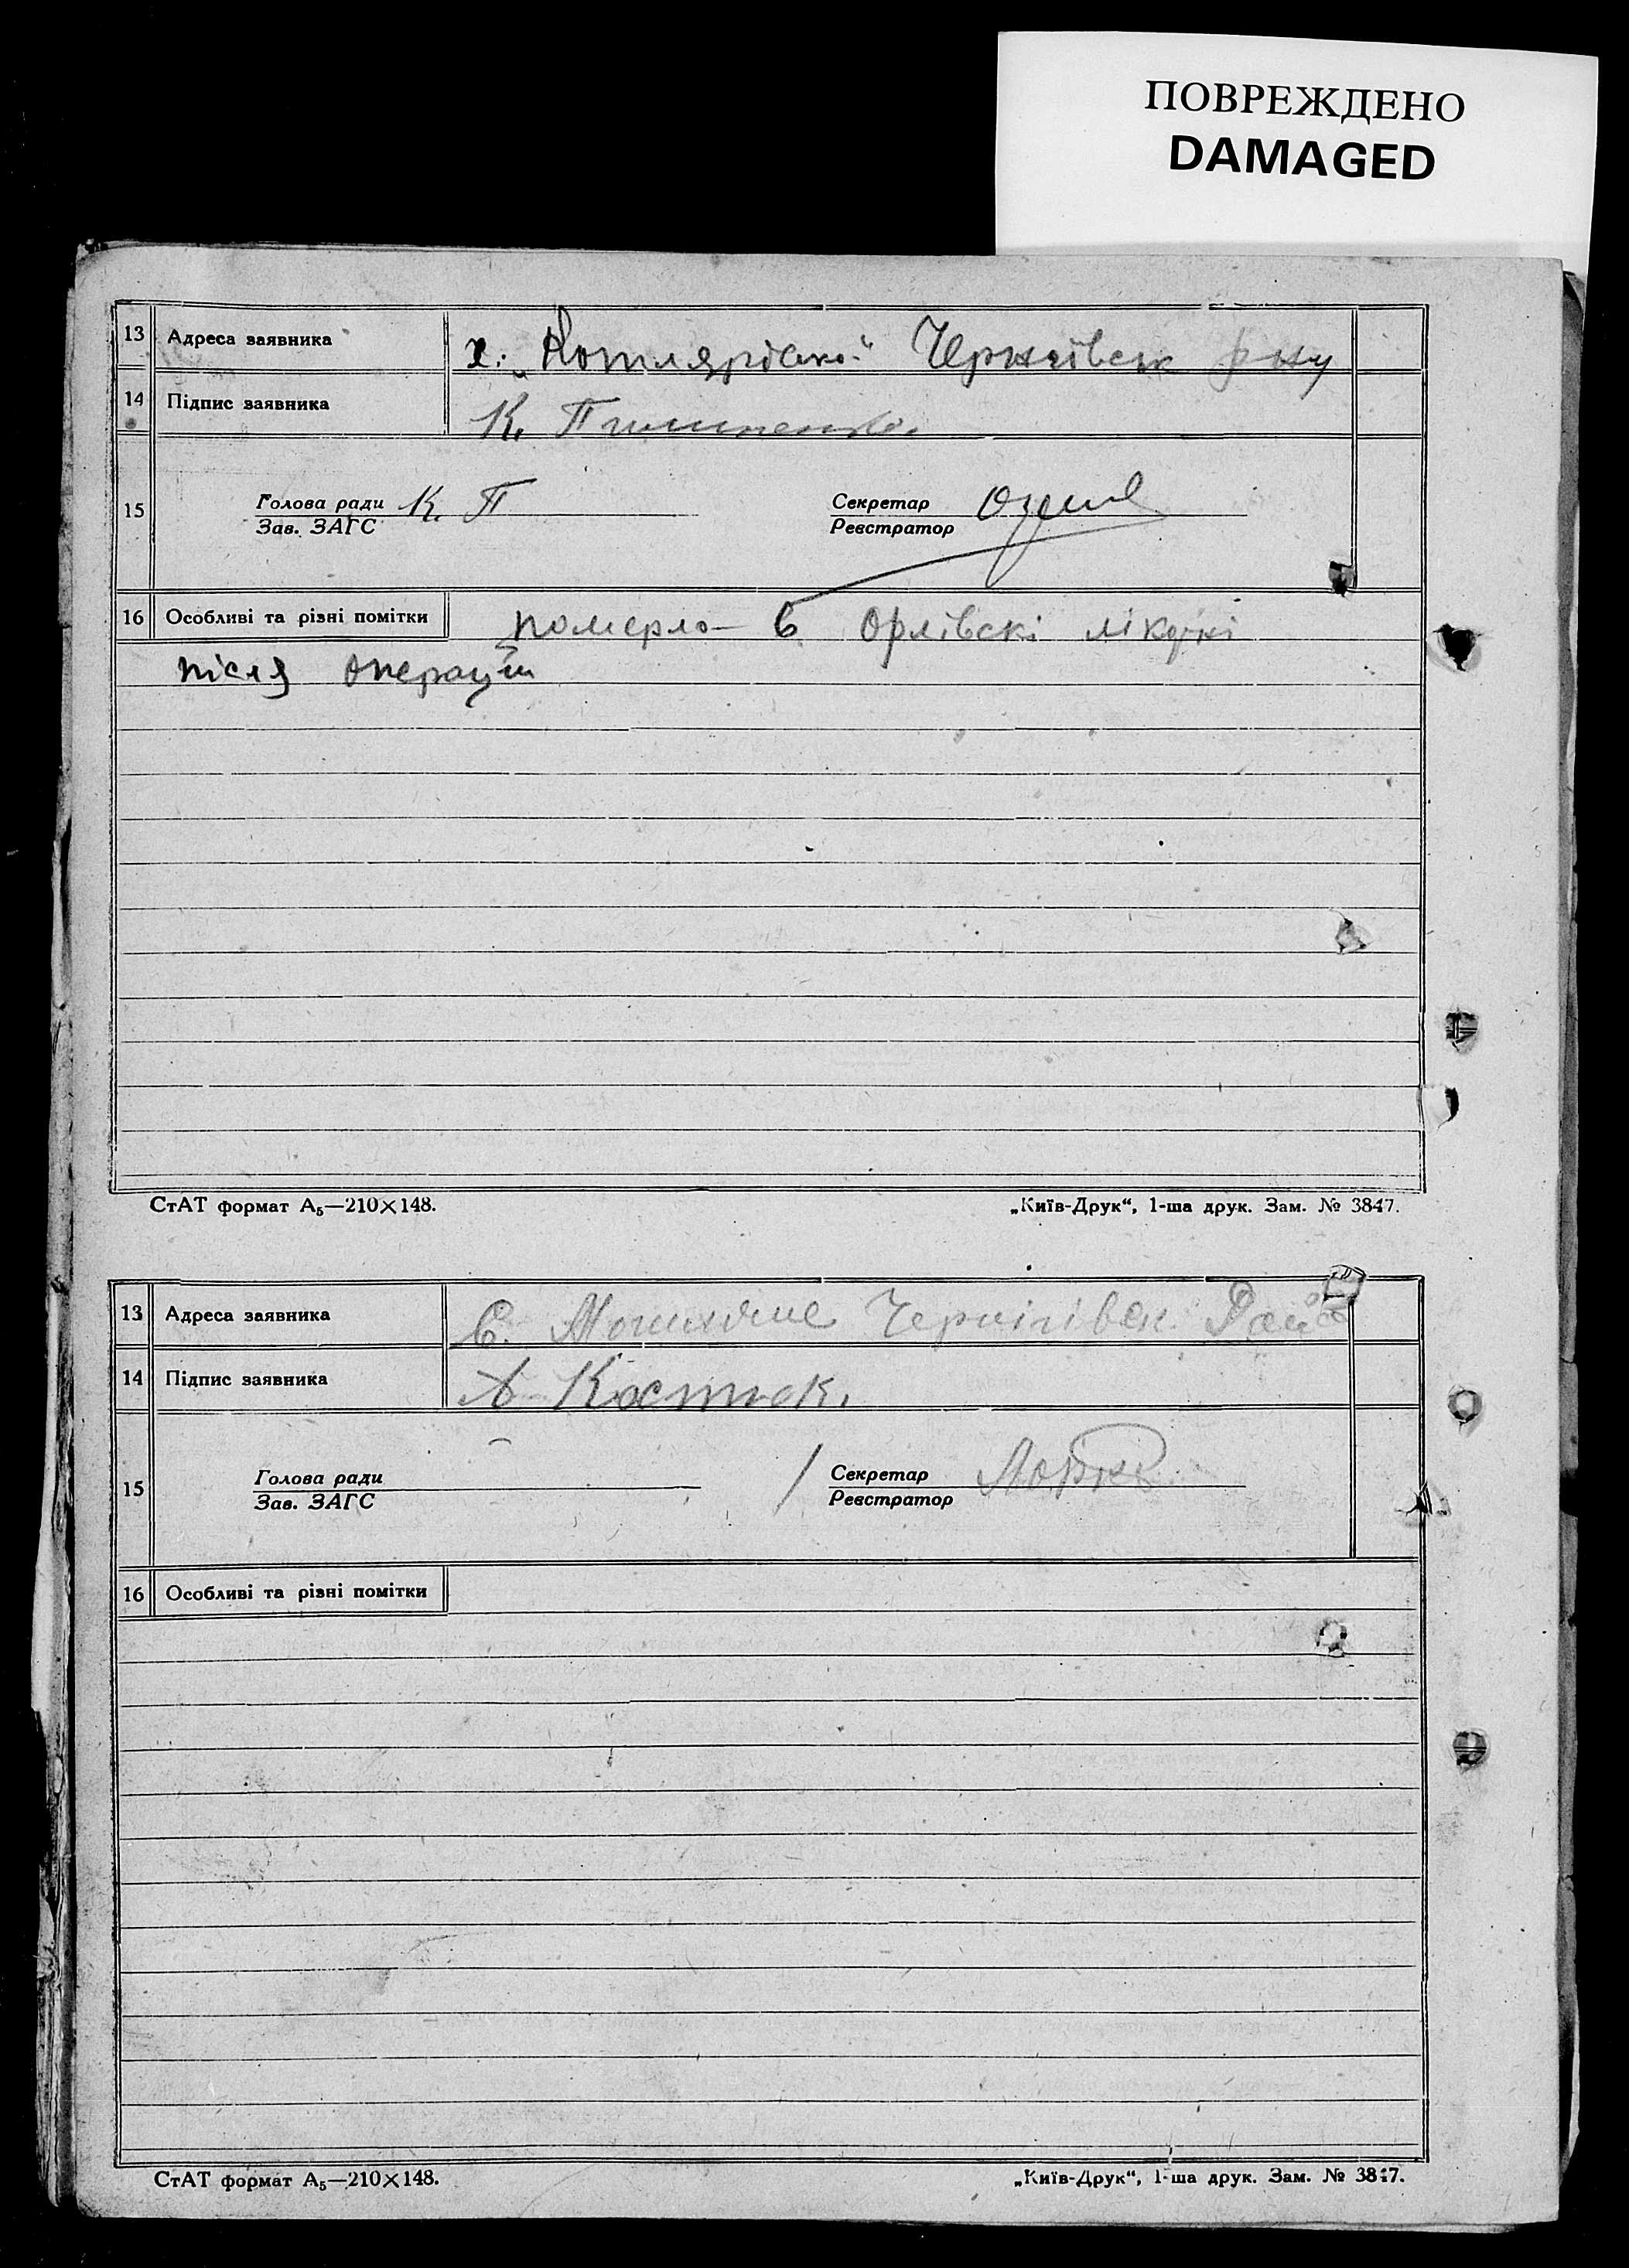 ПОВРЕЖДЕНО
DAMAGED
13 Адреса заявника х. Чернігівськ р-ну
14 Підпис заявника К.
15 Голова ради К. П Секретар
Зав. ЗАГС Реєстратор
16 Особливі та різні помітки померло в Орлівскі лікарні
після операції
СтАТ формат А₅—210×148. „Київ-Друк“, 1-ша друк. Зам. № 3847.
13 Адреса заявника С. Чернігівск. Рай
14 Підпис заявника А Костюк.
15 Голова ради Секретар
Зав. ЗАГС Реєстратор
16 Особливі та різні помітки
СтАТ формат А₅—210×148. „Київ-Друк“, 1-ша друк. Зам. № 3847.